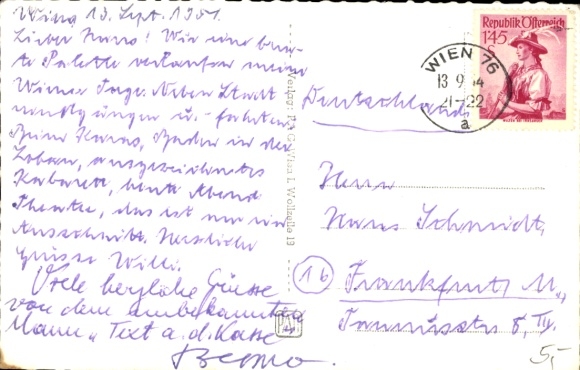 Wien, 13. Sept. 1951.
Lieber Hans! Wie eine bun-
te Palette verlaufen meine
Wiener Tage. Neben Stadt
rundgängen u. -fahrten
Beim Karas, Baden in der
Lobau, ausgezeichnetes
Kabarett, heute Abend
Theater, das ist nur ein
Ausschnitt. Herzliche
Grüsse Willi.
Viele herzliche Grüsse
von dem unbekannten
Mann „Text a. d. Kasse
Verlag: P.A.G. Wien I, Wollzeile 13
PAG
Republik Österreich
1·45
WIEN 76
13 9 54
21-22
a
Deutschland
Herrn
Hans Schmidt,
16 Frankfurt M.,
Taunusstr.
5,-